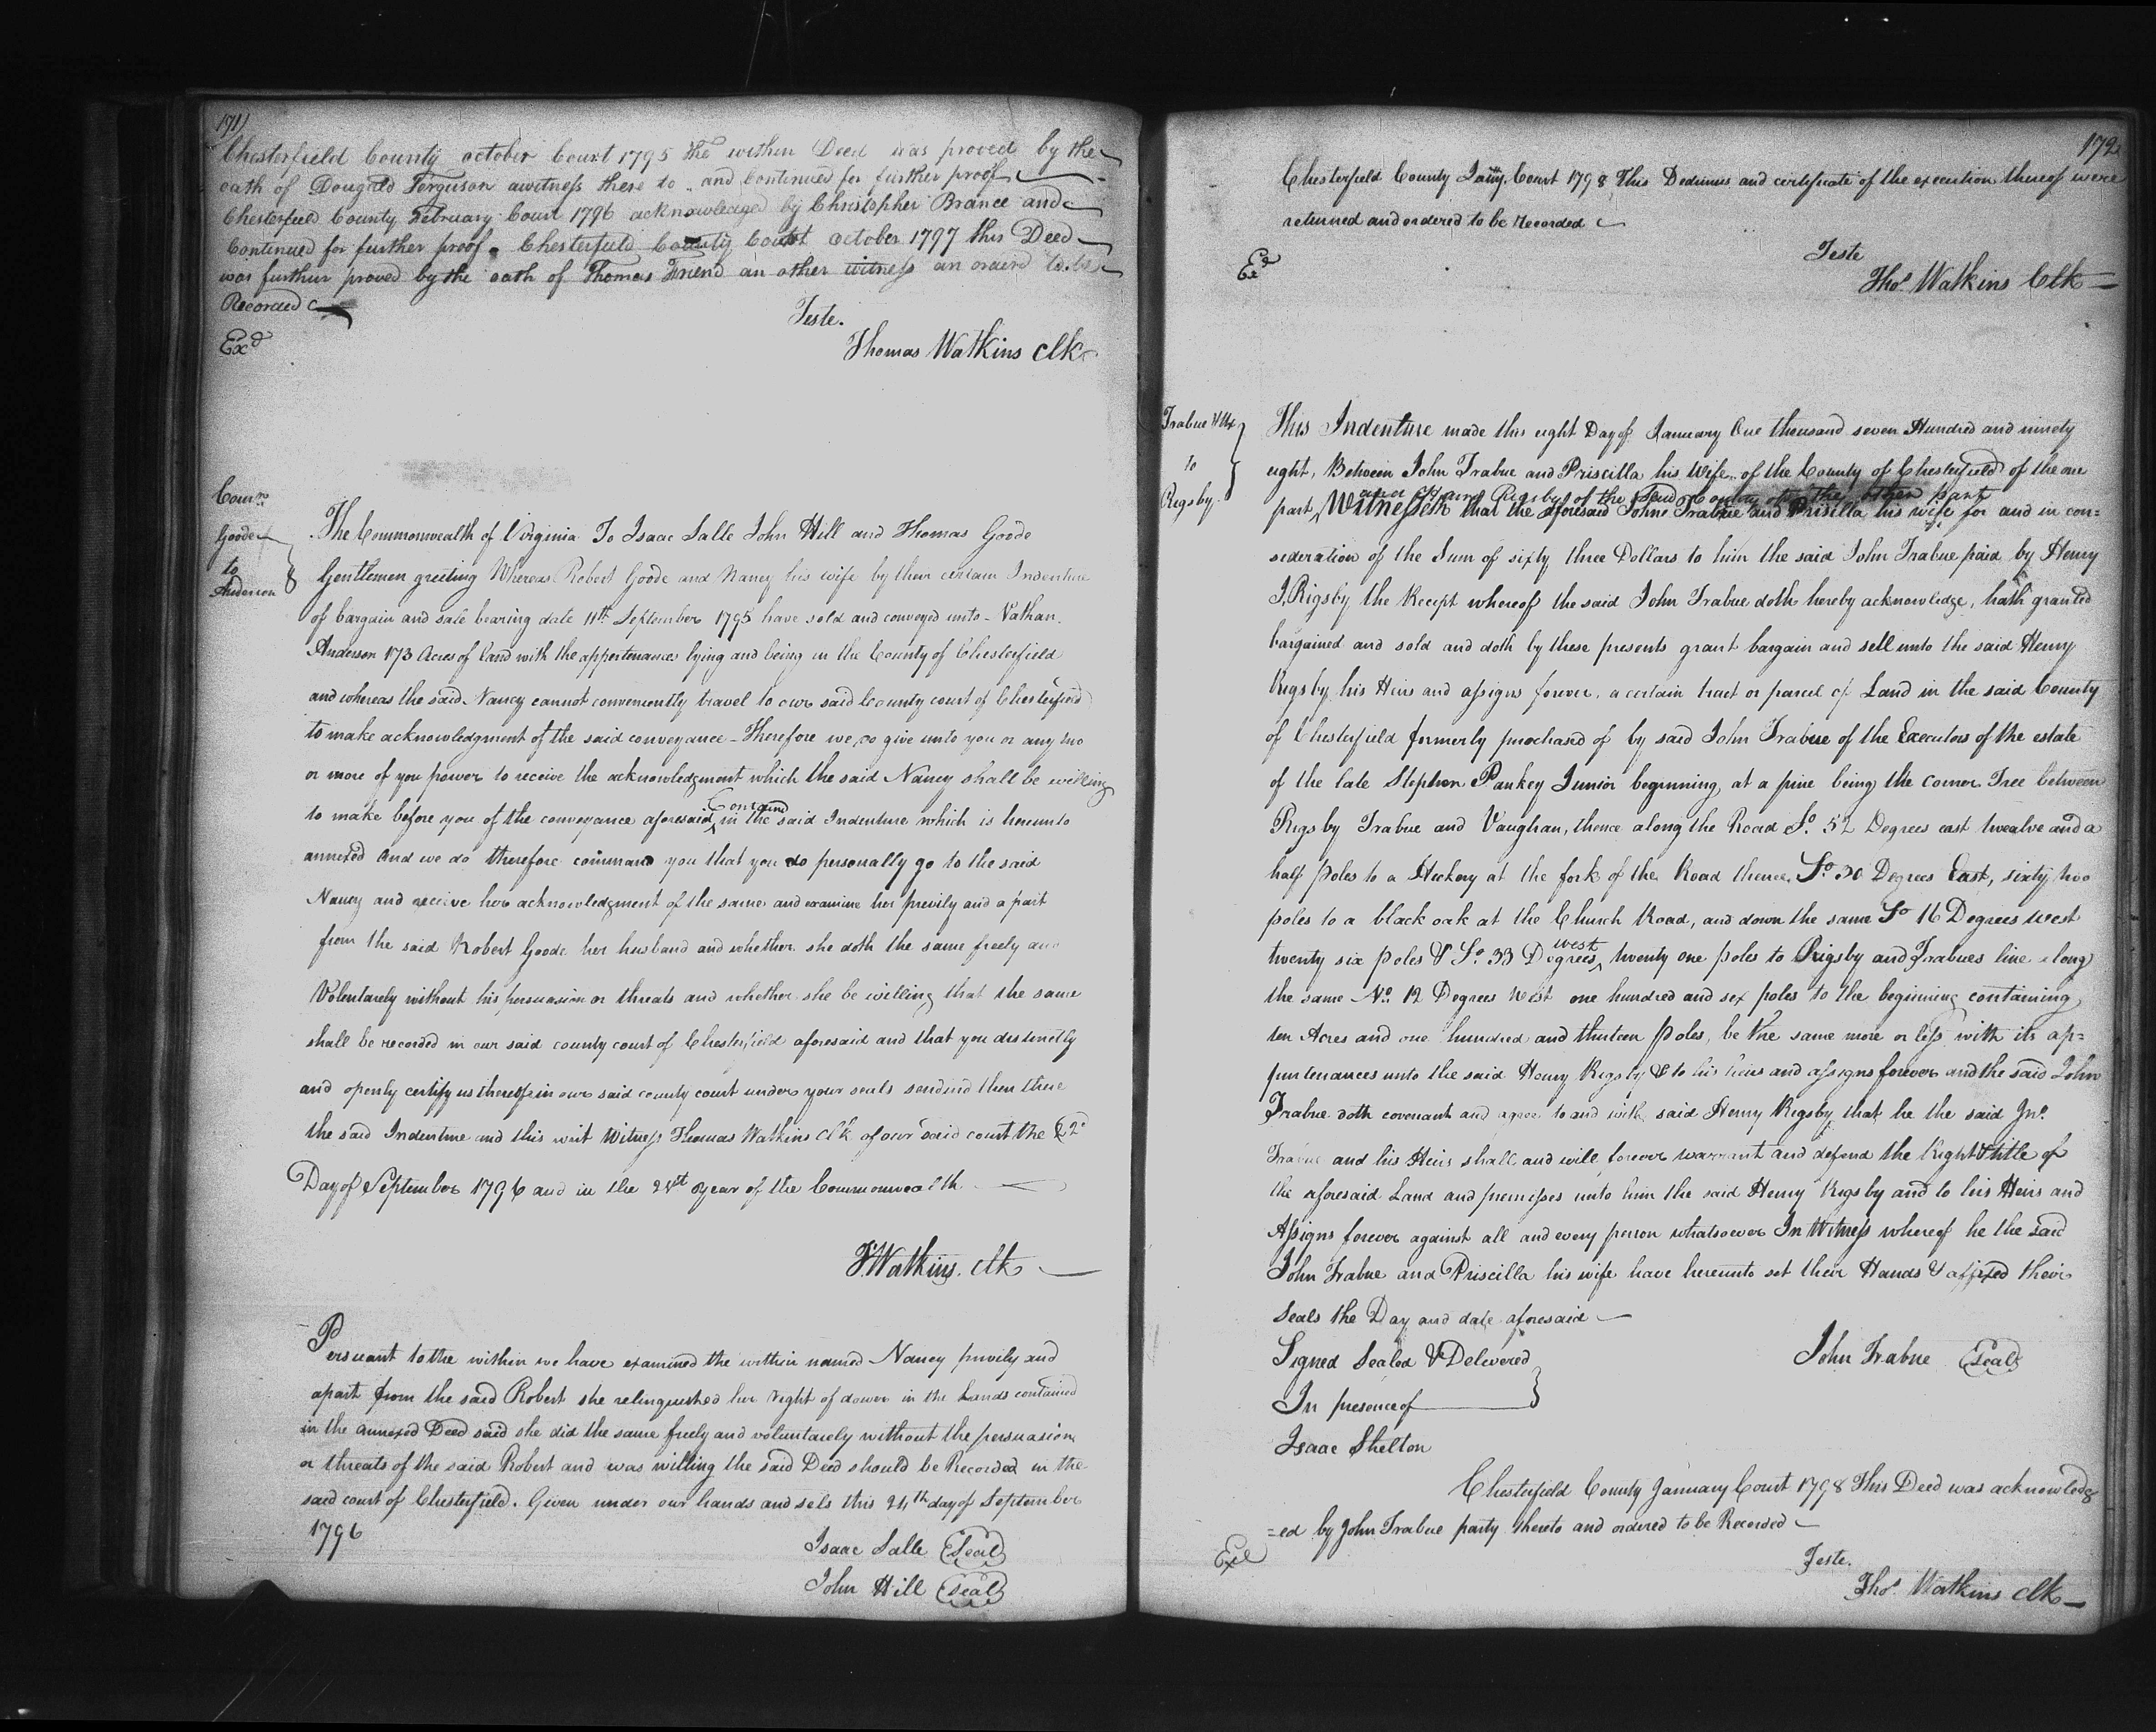 171)
Chesterfield County october Court 1795 the within Deed was proved by the
oath of Dougald Ferguson awitness there to and Continued for further proof
Chesterfield County February Court 1796 acknowledged by Christopher Branch and
Continued for further proof. Chesterfield County Court october 1797 this Deed
was further proved by the oath of Thomas Friend an other witness an orderd to be
Recorded
Teste.
Exd
Thomas Watkins clk
Comn
Goode
to
Anderson
The Commonwealth of Virginia To Isaac Salle John Hill and Thomas Goode
Gentlemen greeting Whereas Robert Goode and Nancy his wife by their certain Indenture
of bargain and sale bearing date 11th September 1795 have sold and conveyed unto Nathan
Anderson 173 Acres of land with the appertenances lying and being in the County of Chesterfield
and whereas the said Nancy cannot conveniently travel to our said County court of Chesterfield
to make acknowledgment of the said conveyance Therefore we do give unto you or any two
or more of you power to receive the acknowledgment which the said Nancy shall be willing
to make before you of the conveyance aforesaid Contained in the said Indenture which is hereunto
annexed And we do therefore command you that you do personally go to the said
Nancy and receive her acknowledgment of the same and examine her previly and a part
from the said Robert Goode her husband and whether she doth the same freely and
Volentarely without his persuasion or threats and whether she be willing that the same
shall be recorded in our said county court of Chesterfield aforesaid and that you distinctly
and openly certify us thereof in our said county court under your seals sendind then there
the said Indenture and this writ Witness Thomas Watkins clk of our said court the 22d
Day of September 1796 and in the 21st year of the Commonwealth
T. Watkins. clk
Persuant to the within we have examined the within named Nancy privily and
apart from the said Robert she relinquished her right of dower in the Lands contained
in the annexed Deed said she did the same freely and voluntarely without the persuasion
or threats of the said Robert and was willing the said Deed should be Recorded in the
said court of Chesterfield. Given under our hands and sels this 24th day of September
1796
Isaac Salle (Seal)
John Hill (Seal)
172
Chesterfield County Jany. Court 1798 This Dedimus and certificate of the execution thereof were
returned and ordered to be Recorded
Teste
Exd
Thos. Watkins Clk
Trabue & Ux
to
Rigsby
This Indenture made this eight Day of January One thousand seven Hundred and ninety
eight, Between John Trabue and Priscilla his Wife of the County of Chesterfield of the one
part, and Henry Rigsby of the said County of the other part
Witnesseth that the aforesaid Johne Trabue and Prisilla his wife for and in con=
sideration of the Sum of sixty three Dollars to him the said John Trabue paid by Henry
I, Rigsby the Receipt whereof the said John Trabue doth hereby acknowledge, hath granted
bargained and sold and doth by these presents grant bargain and sell unto the said Henry
Rigsby his Heirs and assigns forever, a certain tract or parcel of Land in the said County
of Chesterfield formerly purchased of by said John Trabue of the Executors of the estate
of the late Stephen Pankey Junior beginning at a pine being the corner Tree between
Rigsby Trabue and Vaughan, thence along the Road So. 52 Degrees east twealve and a
half poles to a Hickory at the fork of the Road thence So. 30 Degrees East, sixty two
poles to a black oak at the Church Road, and down the same So 16 Degrees west
twenty six poles & So. 33 Degrees west twenty one poles to Rigsby and Trabues line along
the same No. 12 Degrees West one hundred and six poles to the beginning containing
ten Acres and one hundred and thirteen poles, be the same more or less with its ap=
purtenances unto the said Henry Rigsby & to his heirs and assigns forever and the said John
Trabue doth covenant and agree to and with said Henry Rigsby that he the said Jno.
Trabue and his Heirs shall and will forever warrant and defend the Right & title of
the aforesaid Land and premisses unto him the said Henry Rigsby and to his Heirs and
Assigns forever against all and every person whatsoever In Witness whereof he the said
John Trabue and Priscilla his wife have hereunto set their Hands & affixed their
Seals the Day and date aforesaid
Signed Sealed & Delivered
John Trabue (Seal)
In presence of
Isaac Shelton
Chesterfield County January Court 1798 This Deed was acknowledg
=ed by John Trabue party thereto and ordered to be Recorded
Teste.
Exd
Thos. Watkins clk